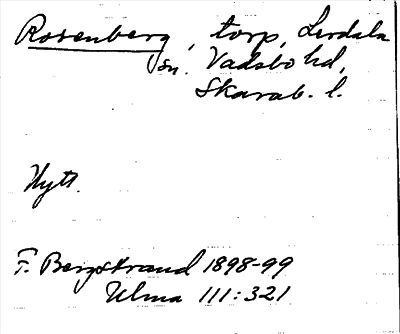 Rosenberg, torp, Lerdala
sn. Vadsbo hd,
Skarab. l.
Nytt.
F. Bergstrand 1898-99
Ulma 111:321